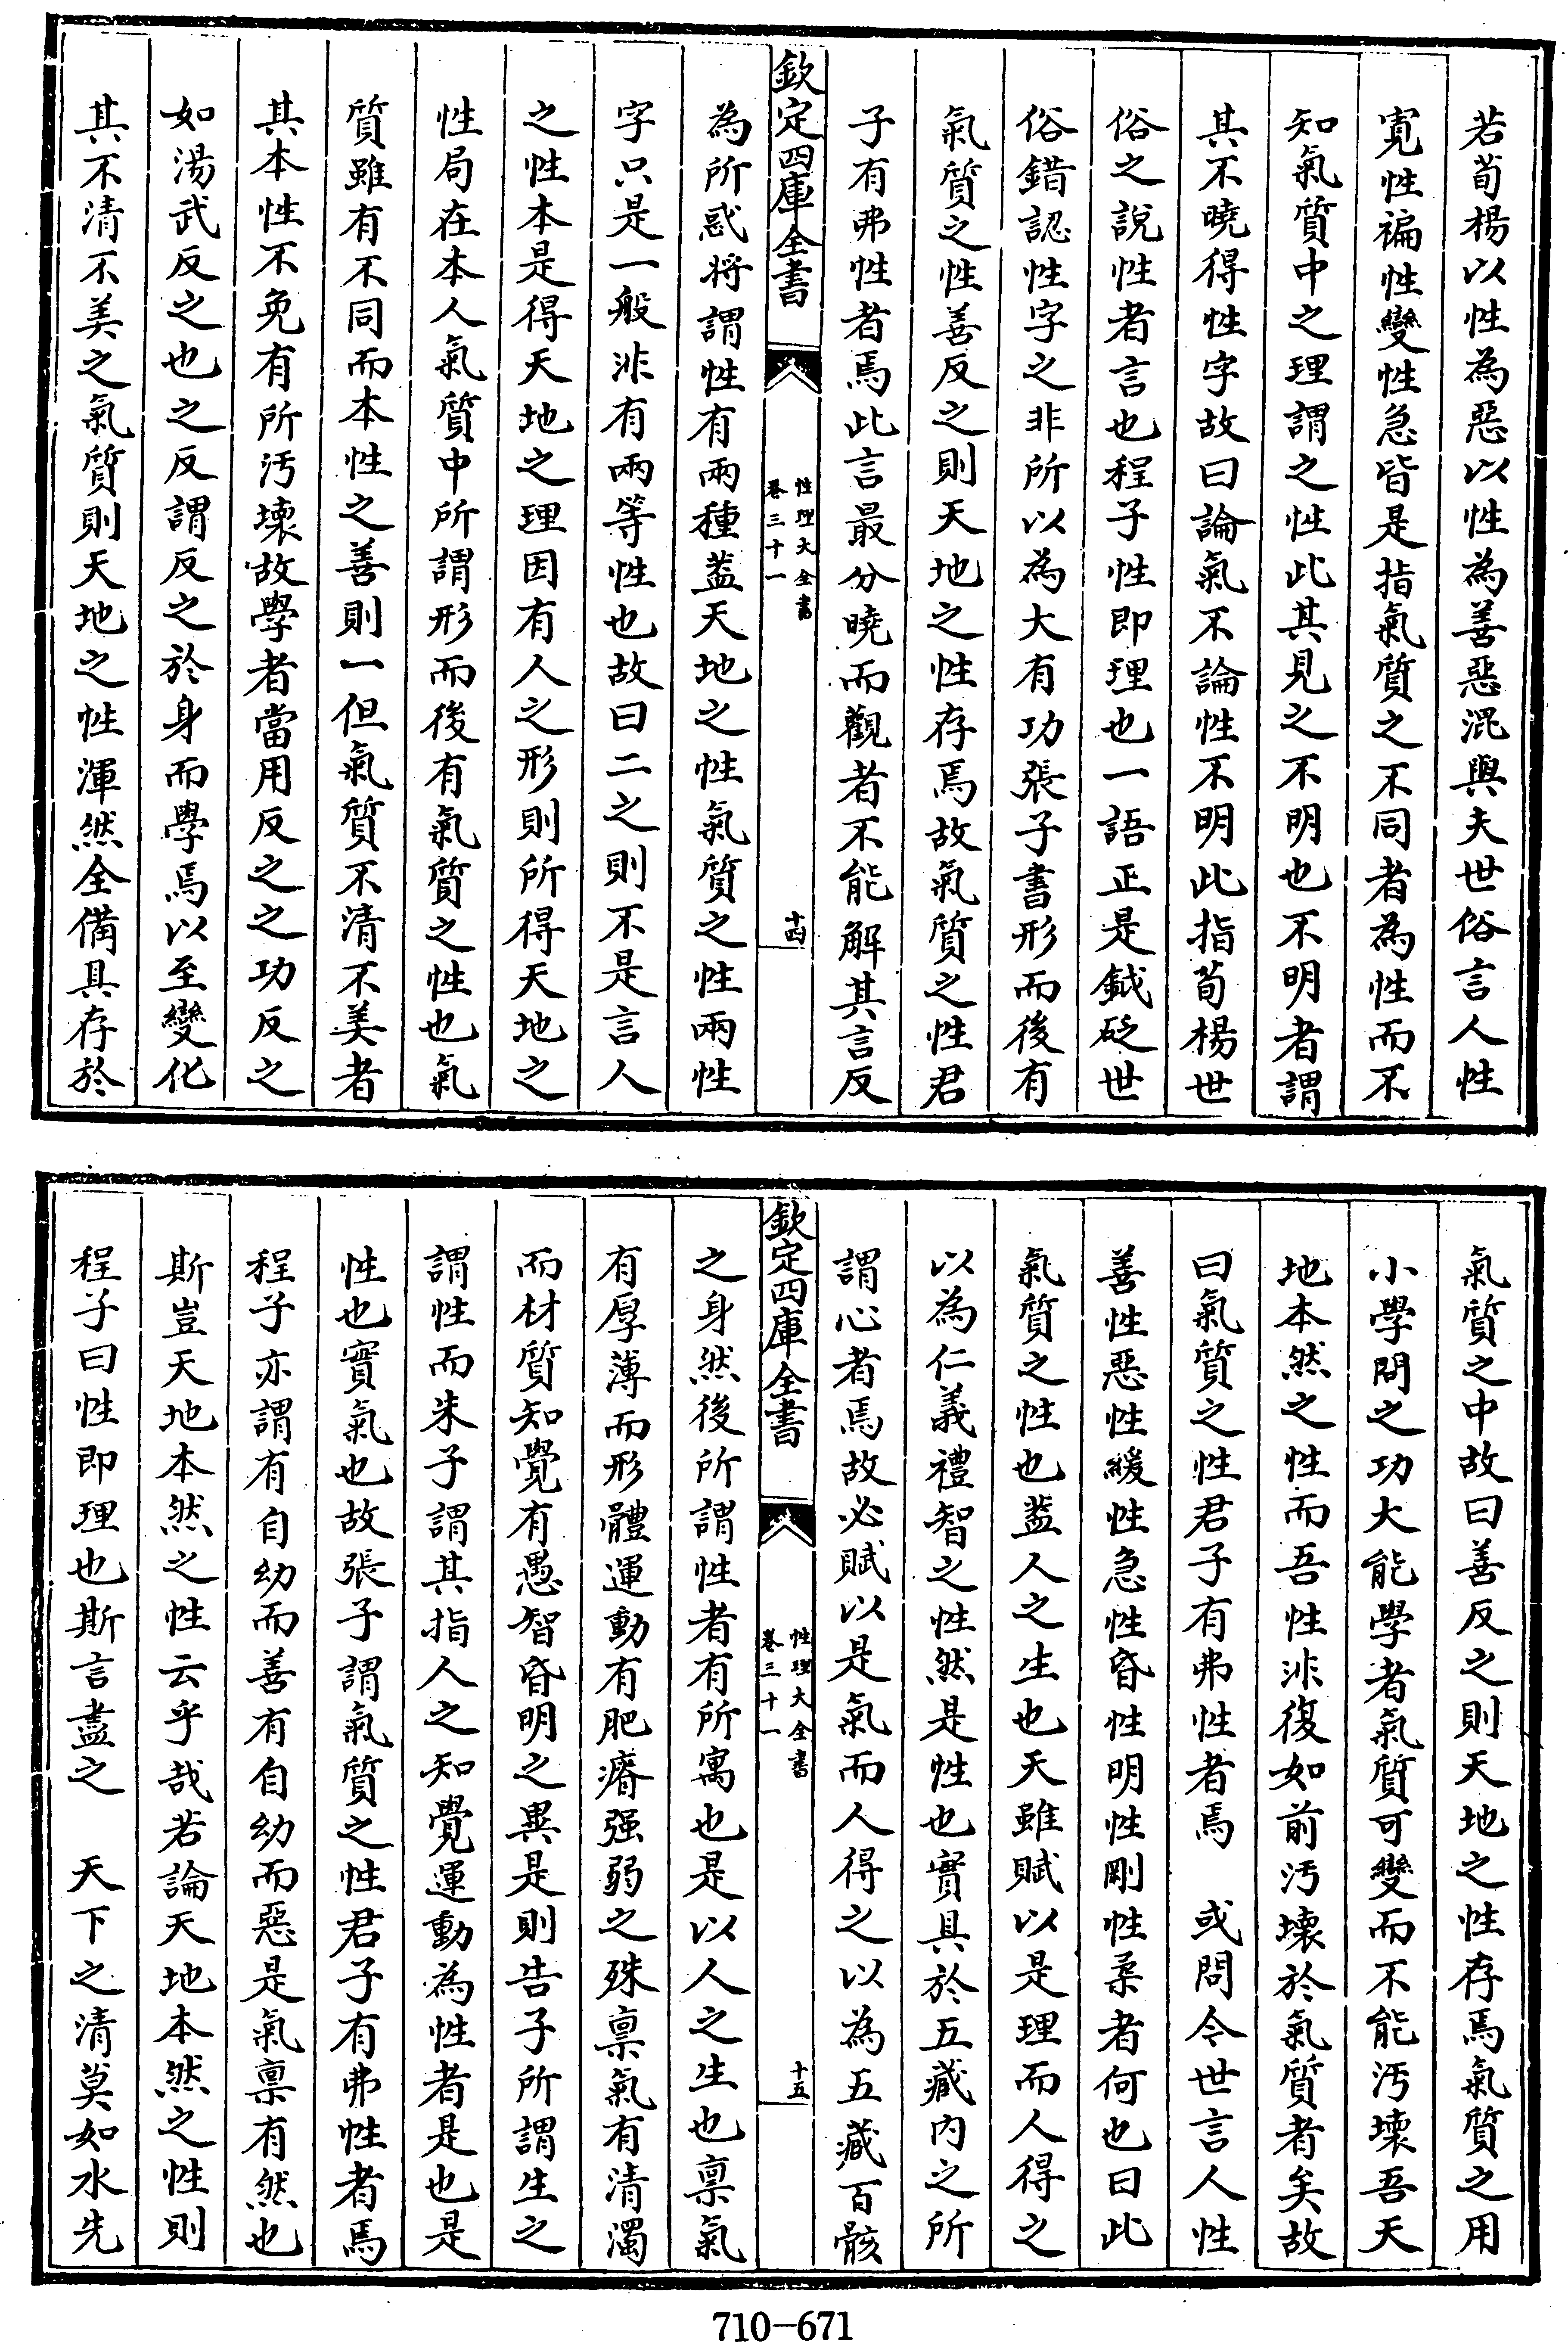 若荀楊以性為惡以性為善惡混與夫世俗言人性
寛性褊性變性急皆是指氣質之不同者為性而不
知氣質中之理謂之性此其見之不明也不明者謂
其不曉得性字故曰論氣不論性不明此指荀楊世
俗之說性者言也程子性即理也一語正是鉞砭世
俗錯認性字之非所以為大有功張子書形而後有
氣質之性善反之則天地之性存焉故氣質之性君
子有弗性者焉此言最分曉而觀者不能解其言反
欽定四庫全書
性理大全書
卷三十一
十四
為所惑将謂性有兩種葢天地之性氣質之性兩性
字只是一般非有兩等性也故曰二之則不是言人
之性本是得天地之理因有人之形則所得天地之
性局在本人氣質中所謂形而後有氣質之性也氣
質雖有不同而本性之善則一但氣質不清不美者
其本性不免有所汚壊故學者當用反之之功反之
如湯武反之也之反謂反之於身而學焉以至變化
其不清不美之氣質則天地之性渾然全備具存於
氣質之中故曰善反之則天地之性存焉氣質之用
小學問之功大能學者氣質可變而不能汚壊吾天
地本然之性而吾性非復如前汚壊於氣質者矣故
曰氣質之性君子有弗性者焉　或問今世言人性
善性惡性緩性急性昏性明性剛性柔者何也曰此
氣質之性也葢人之生也天雖賦以是理而人得之
以為仁義禮智之性然是性也實具於五藏内之所
謂心者焉故必賦以是氣而人得之以為五藏百骸
欽定四庫全書
性理大全書
卷三十一
十五
之身然後所謂性者有所寓也是以人之生也禀氣
有厚薄而形體運動有肥瘠强弱之殊禀氣有清濁
而材質知覺有愚智昏明之異是則告子所謂生之
謂性而朱子謂其指人之知覺運動為性者是也是
性也實氣也故張子謂氣質之性君子有弗性者焉
程子亦謂有自幼而善有自幼而惡是氣禀有然也
斯豈天地本然之性云乎哉若論天地本然之性則
程子曰性即理也斯言盡之　天下之清莫如水先
710-671